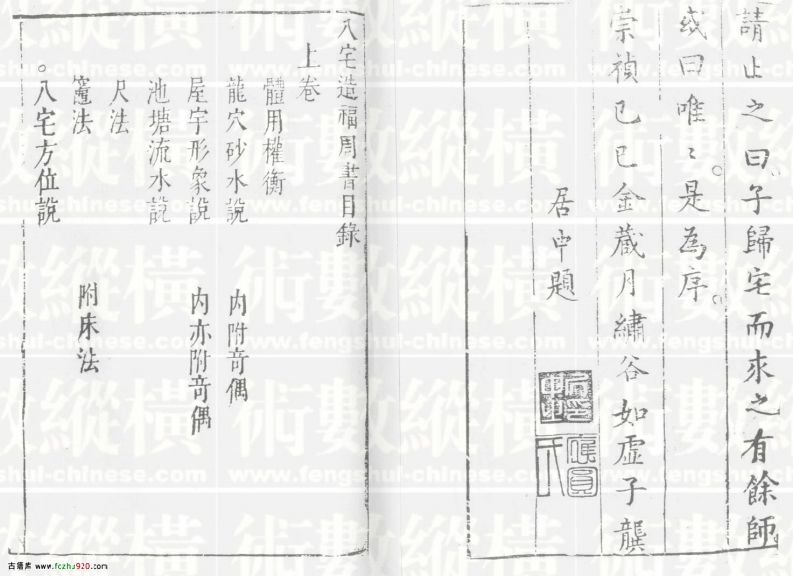 請止之曰子歸宅而求之有餘師
或曰唯〻是為序
崇禎己巳金蔵月繡谷如虛子龔
居中題
八宅造福周書目錄
上卷
體用權衡
龍穴砂水說 內附奇偶
屋宇形象說 內亦附奇偶
池塘流水說
尺法
竈法 附床法
八宅方位說
術數縱橫
www.fengshui-chinese.com
古籍库 www.fczhu920.com